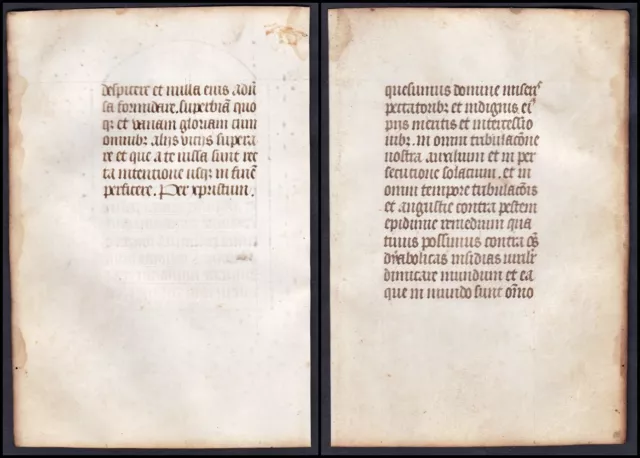 despicere et nulla eius adũ
sa formidare. superbiã quo
qȝ et vanam gloriam cum
omnibȝ alijs vicijs supera
re et que a te iussa sunt rec
ta intencione usqȝ in finẽ
perficere. Per xpristum.
quesumus domine misers
peccatoribȝ et indignis eis
pijs meritis et intercessio
nibȝ. in omni tribulacõne
nostra auxilium et in per
secutione solacium. et in
omni tempore tribulacõnis
et angustie contra pestem
epidimie remedium qua
tinus possimus contra õs
dyabolicas insidias viriliter
dimicare mundum et ea
que in mundo sunt omnio